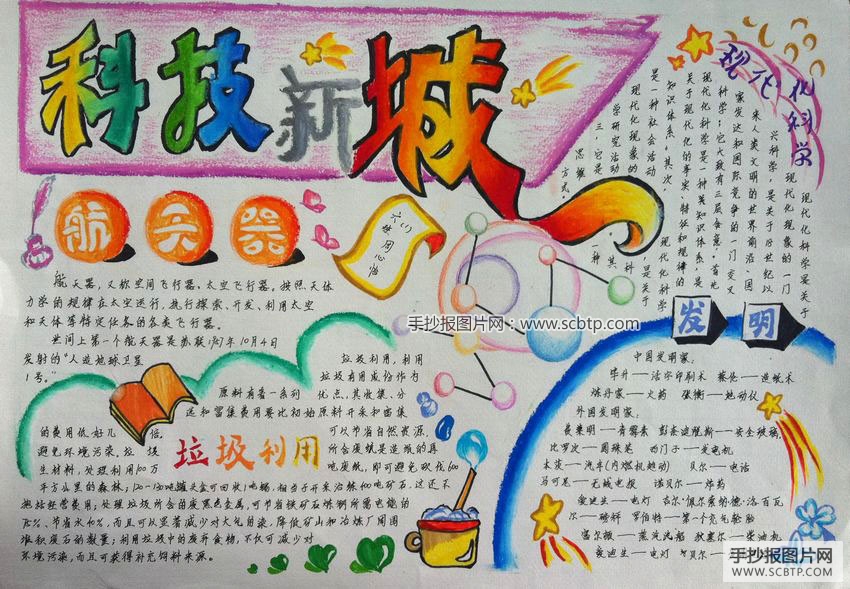 科技新城
航天器
航天器，又称空间飞行器、太空飞行器。按照天体
力学的规律在太空运行，执行探索、开发、利用太空
和天体等特定任务的各类飞行器。
世间上第一个航天器是苏联1957年10月4日
发射的“人造地球卫星
1号。”
垃圾利用
垃圾利用，利用
垃圾有用成份作为
原料有着一系列
优点，其收集、分
选和富集费用要比初始原料开采和富集
的费用低好几
倍。
可以节省自然资源，
避免环境污染。垃圾
所含废纸是造纸的再
生材料，处理利用100万
吨废纸，即可避免砍伐600
平方公里的森林；120-130吨罐头盒可回收1吨锡，相当于开采冶炼400吨矿石，这还不
包括经营费用；处理垃圾所含的废黑色金属，可节省铁矿石炼钢所需电能的
75%，节省水40%，而且可以显著减少对大气的污染，降低矿山和冶炼厂周围
堆积废石的数量；利用垃圾中的废弃食物，不仅可减少对
环境污染，而且可获得补充饲料来源。
现代化科学
现代化科学是关于
现代化现象的一门
兴科学，是关于18世纪以
来人类文明的世界前沿、国
家发达和国际竞争的一门交叉
科学；它大致有三层含意，首先
现代化科学是一种类知识体系，是
关于现代化的事实、特征和规律的
知识体系，其次，
现代化科学
是一种社会活动
是关于
现代化现象的
科
学研究活动
其
三，它是
一种
思维
方式。
发明
中国发明家：
毕升——活字印刷术 蔡伦——造纸术
炼丹家——火药 张衡——地动仪
外国发明家：
弗莱明——青霉素 彭奈迪脱斯——安全玻璃，
比罗次——圆珠笔 西门子——发电机
本茨——汽车(内燃机驱动) 贝尔——电话
马可尼——无线电报 诺贝尔——炸药
爱迪生——电灯 古尔·佩尔索纳德·洛百瓦
尔——磅秤 罗伯特——第一个充气轮胎
富尔顿——蒸汽汽船 狄塞尔——柴油机
爱迪生——电灯 贝尔——
手抄报图片网：www.scbtp.com
手抄报图片网
WWW.SCBTP.COM